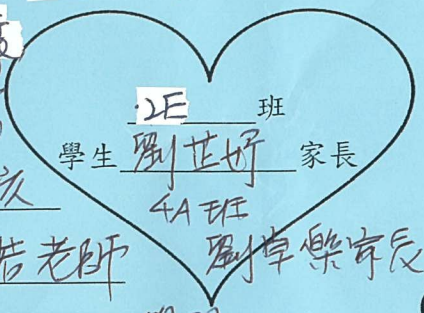 2E 班
學生 劉芷妤 家長
4A班
劉卓樂家長
老師